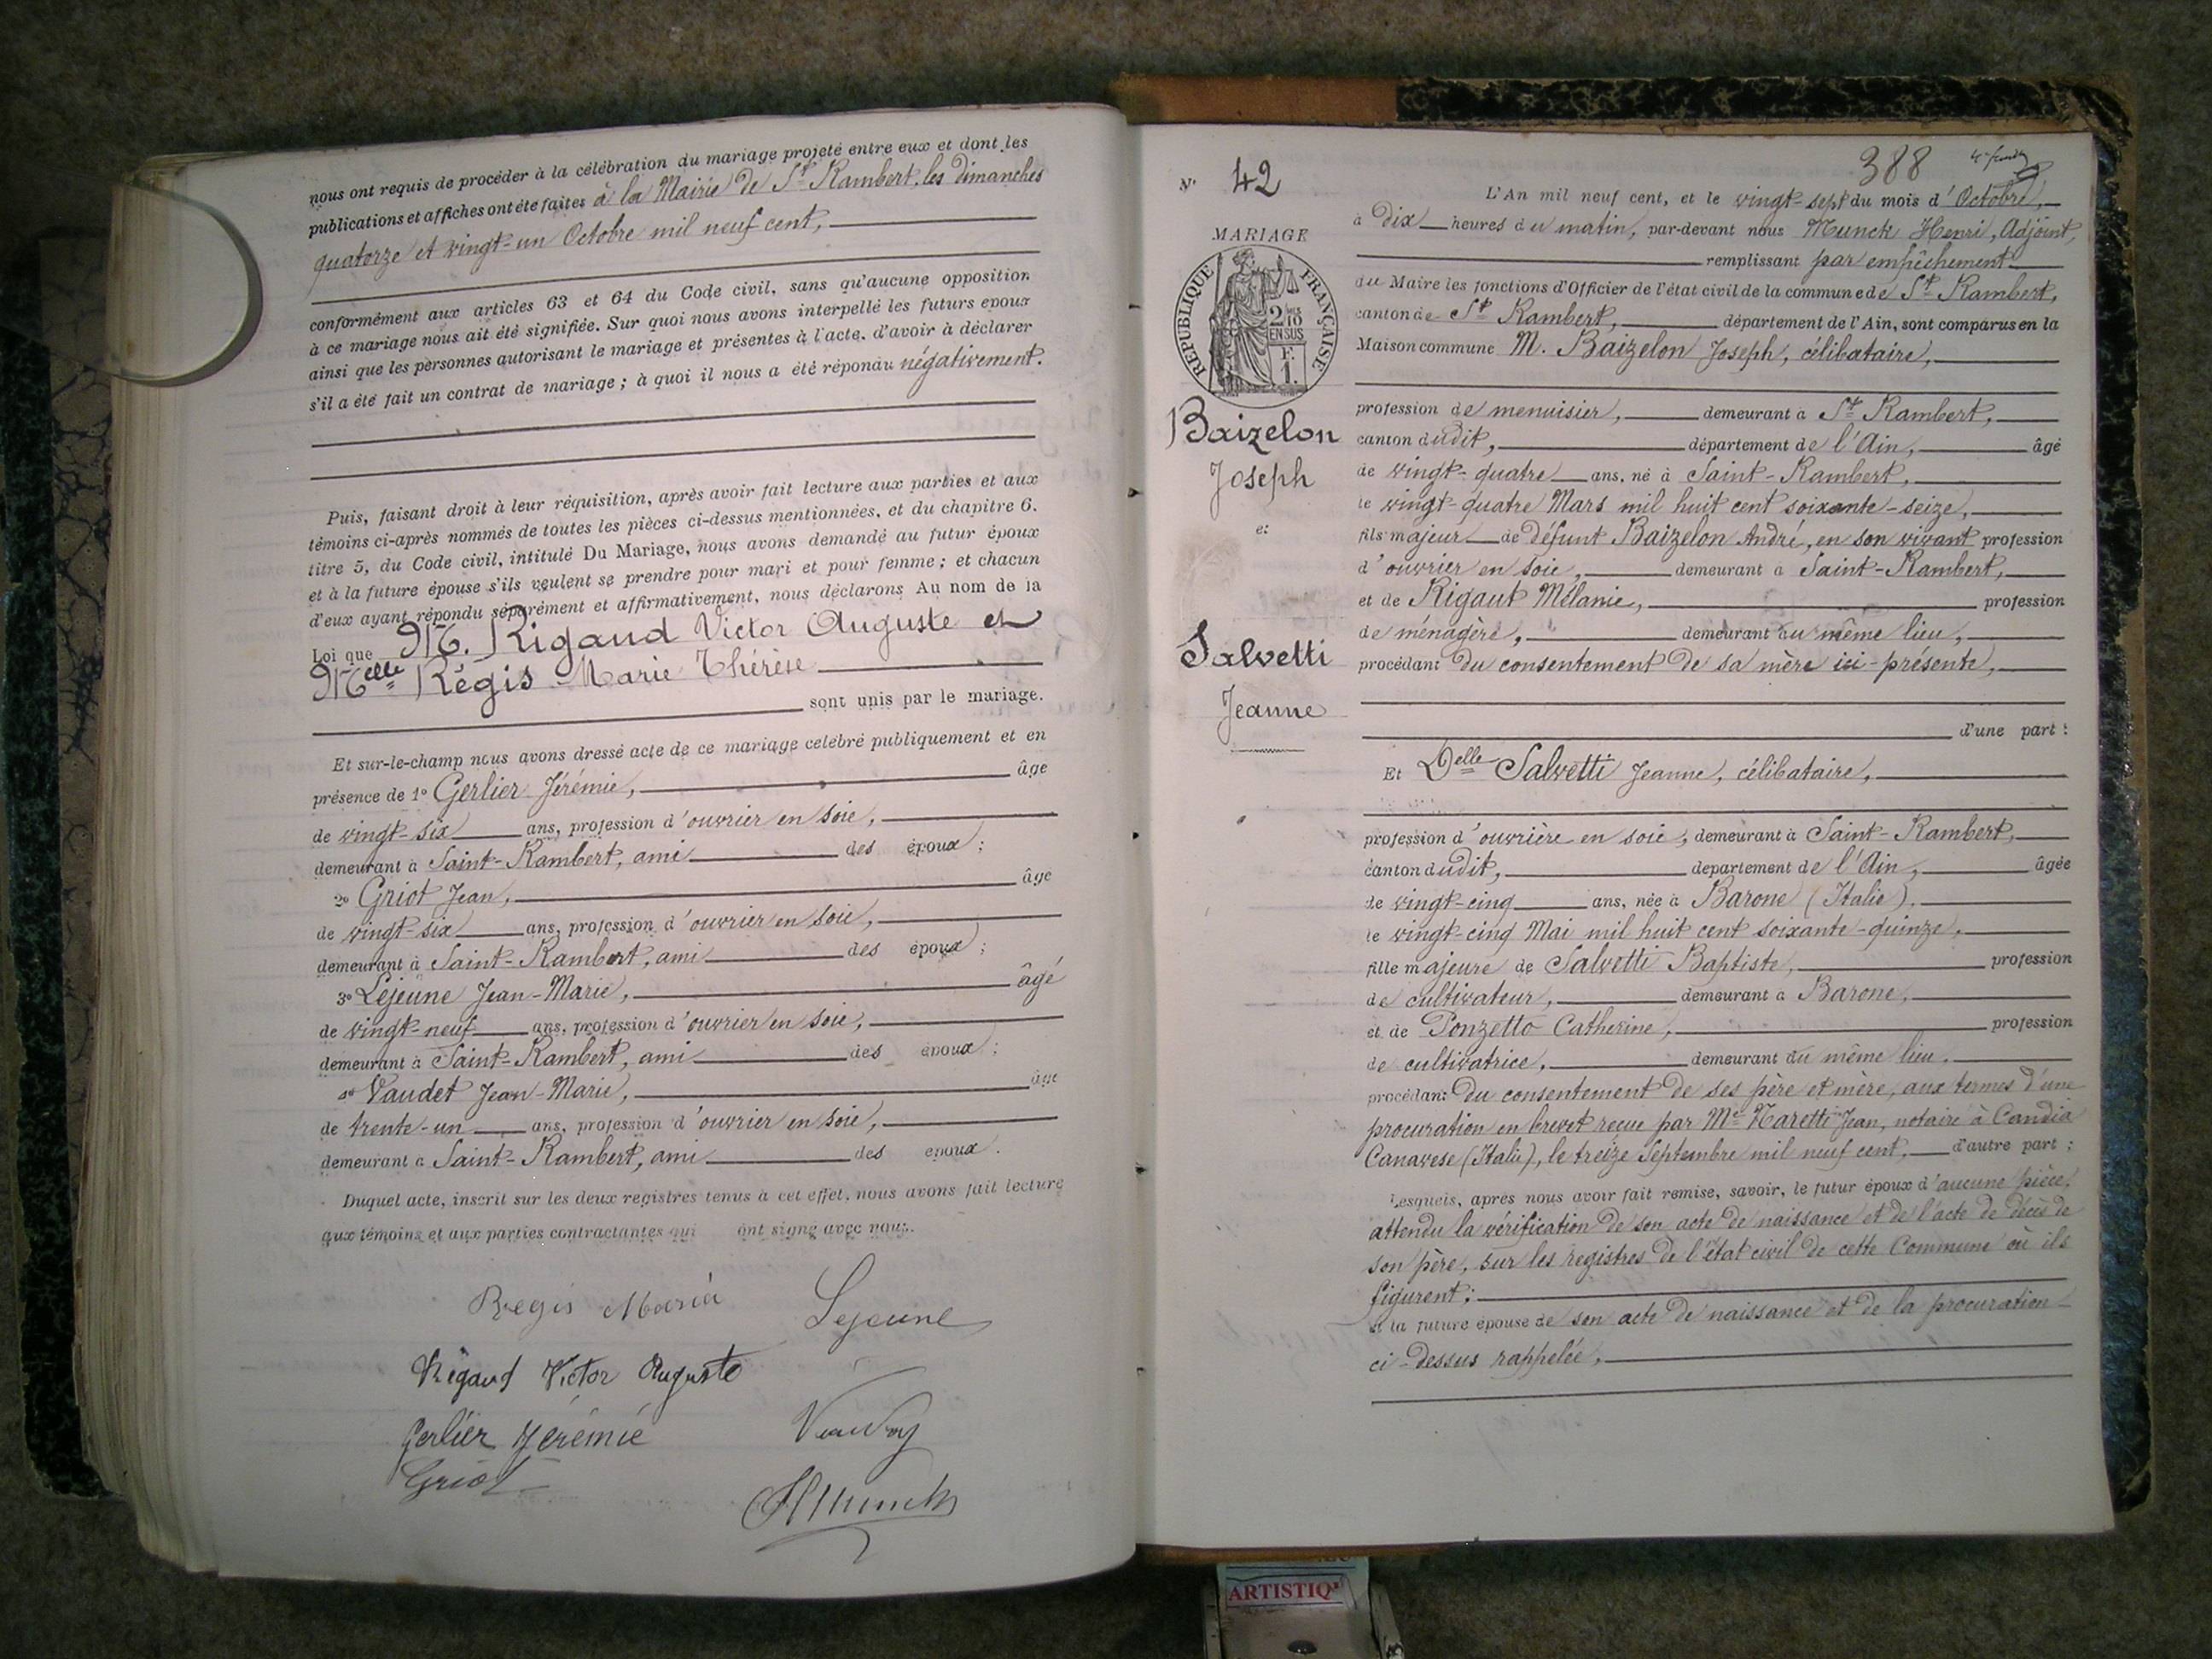 nous ont requis de procéder à la célébration du mariage projeté entre eux et dont les
publications et affiches ont été faites à la Mairie de St Rambert, les dimanches
quatorze et vingt-un Octobre mil neuf cent,
conformément aux articles 63 et 64 du Code civil, sans qu'aucune opposition
à ce mariage nous ait été signifiée. Sur quoi nous avons interpellé les futurs époux
ainsi que les personnes autorisant le mariage et présentes à l'acte, d'avoir à déclarer
s'il a été fait un contrat de mariage ; à quoi il nous a été répondu négativement.
Puis, faisant droit à leur réquisition, après avoir fait lecture aux parties et aux
témoins ci-après nommés de toutes les pièces ci-dessus mentionnées, et du chapitre 6.
titre 5, du Code civil, intitulé Du Mariage, nous avons demandé au futur époux
et à la future épouse s'ils veulent se prendre pour mari et pour femme ; et chacun
d'eux ayant répondu séparément et affirmativement, nous déclarons Au nom de la
Loi que M. Rigaud Victor Auguste et
Melle Régis Marie Thérèse
sont unis par le mariage.
Et sur-le-champ nous avons dressé acte de ce mariage célébré publiquement et en
présence de 1° Gerlier Jérémie, âgé
de vingt-six ans, profession d'ouvrier en soie,
demeurant à Saint-Rambert, ami des époux ;
2° Griot Jean, âgé
de vingt-six ans, profession d'ouvrier en soie,
demeurant à Saint-Rambert, ami des époux ;
3° Lejeune Jean-Marie, âgé
de vingt-neuf ans, profession d'ouvrier en soie,
demeurant à Saint-Rambert, ami des époux ;
4° Vaudet Jean-Marie, âgé
de trente-un ans, profession d'ouvrier en soie,
demeurant à Saint-Rambert, ami des époux.
Duquel acte, inscrit sur les deux registres tenus à cet effet, nous avons fait lecture
aux témoins et aux parties contractantes qui ont signé avec nous.
Regis Maria
Lejeune
Rigaud Victor Auguste
Gerlier Jérémie
Griot
HMunck
N° 42
388
MARIAGE
RÉPUBLIQUE FRANÇAISE
2 10 EN SUS
F. 1.
Baizelon
Joseph
et
Salvetti
Jeanne
L'An mil neuf cent, et le vingt-sept du mois d'Octobre,
à dix heures du matin, par-devant nous Munck Henri, Adjoint,
remplissant par empêchement
du Maire les fonctions d'Officier de l'état civil de la commune de St Rambert,
canton de St Rambert, département de l'Ain, sont comparus en la
Maison commune M. Baizelon Joseph, célibataire,
profession de menuisier, demeurant à St Rambert,
canton dudit, département de l'Ain, âgé
de vingt-quatre ans, né à Saint-Rambert,
le vingt-quatre Mars mil huit cent soixante-seize,
fils majeur de défunt Baizelon André, en son vivant profession
d'ouvrier en soie, demeurant à Saint-Rambert,
et de Rigaut Mélanie, profession
de ménagère, demeurant au même lieu,
procédant du consentement de sa mère ici-présente,
d'une part :
Et Delle Salvetti Jeanne, célibataire,
profession d'ouvrière en soie, demeurant à Saint-Rambert,
canton dudit, département de l'Ain, âgée
de vingt-cinq ans, née à Barone (Italie),
le vingt-cinq Mai mil huit cent soixante-quinze,
fille majeure de Salvetti Baptiste, profession
de cultivateur, demeurant à Barone,
et de Ponzetto Catherine, profession
de cultivatrice, demeurant au même lieu.
procédant du consentement de ses père et mère, aux termes d'une
procuration en brevet reçue par Me Naretti Jean, notaire à Candia
Canavese (Italie), le treize Septembre mil neuf cent, d'autre part ;
Lesquels, après nous avoir fait remise, savoir, le futur époux d'aucune pièce,
attendu la vérification de son acte de naissance et de l'acte de décès de
son père, sur les registres de l'état civil de cette Commune où ils
figurent ;
et la future épouse de son acte de naissance et de la procuration
ci-dessus rappelée,
ARTISTIQ